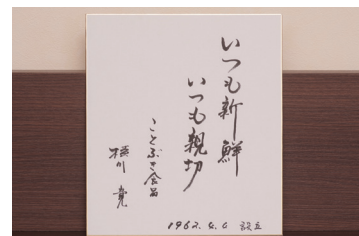 いつも新鮮
いつも親切
ことぶき食品
横川 竟
1962.4.6 設立